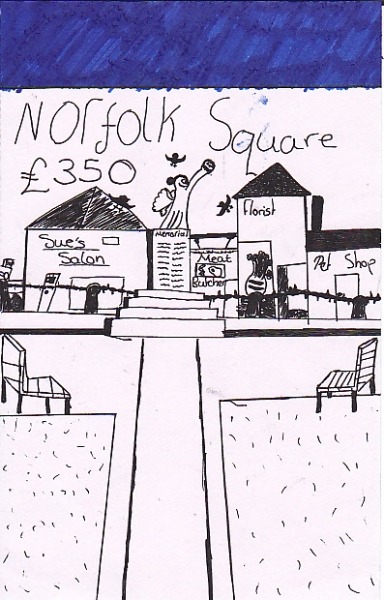 Norfolk Square
£350
Florist
Sue's
Salon
Memorial
Meat
Butcher
Pet Shop